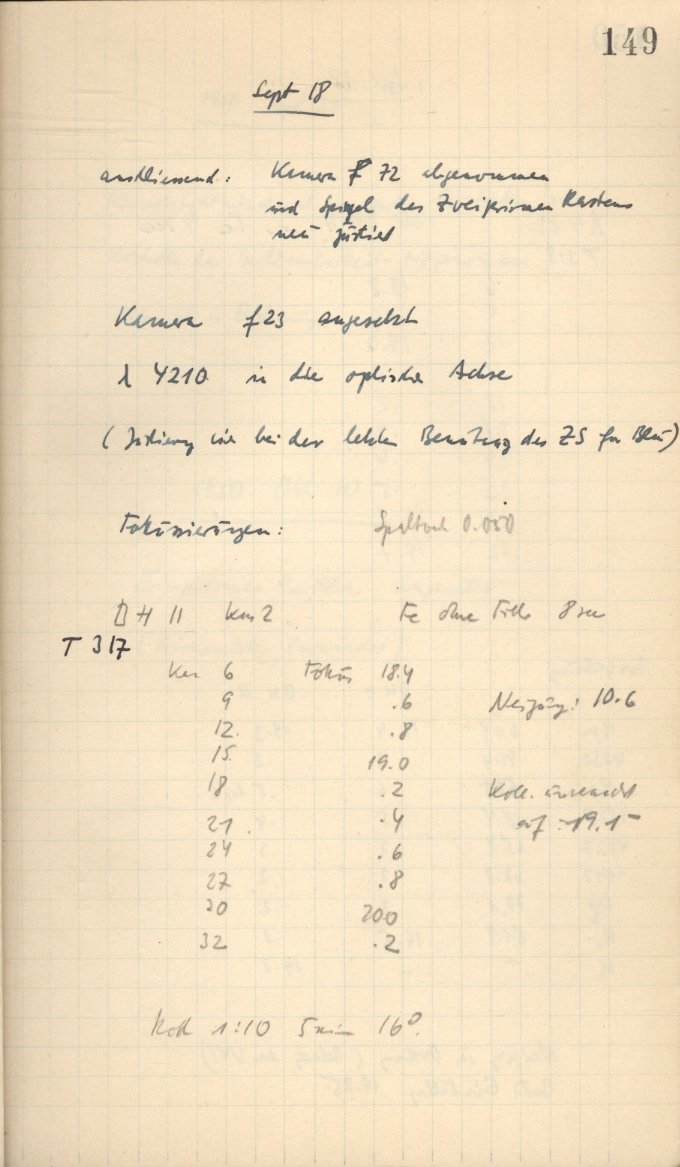 149
Sept 18
anschliessend: Kamera f 72 abgenommen
und Spiegel des Zweiprismen Kastens
neu justiert
Kamera f 23 angesetzt
λ 4210 in die optische Achse
(Justierung wie bei der letzten Benützung des ZS für Blau)
Fokussierungen: Spaltweite 0.050
H II Kas 2 Fe ohne Filter 8 sec
T 317
Kas 6 Fokus 18.4
9 .6 Neigung: 10.6
12 .8
15 19.0
18 .2 Koll.
21 .4 auf 19.15
24 .6
27 .8
30 20.0
32 .2
Rod 1:10 5 min 16°